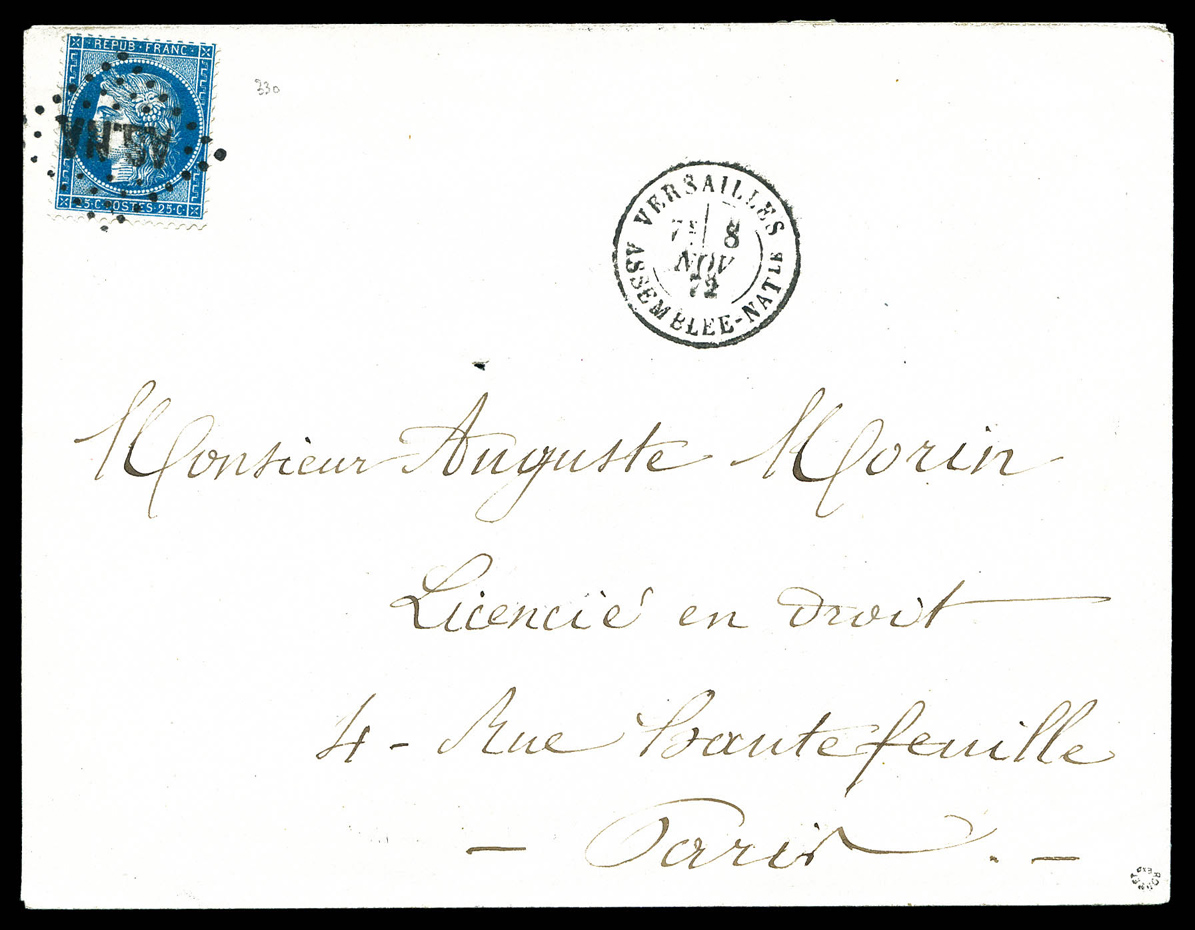 REPUB · FRANC ·
AS.NA
25·C·POSTES·25·C·
330
VERSAILLES
7E 8
NOV
72
ASSEMBLEE-NATLE
Monsieur Auguste Morin
Licencié en droit
4 - Rue Hautefeuille
- Paris . -